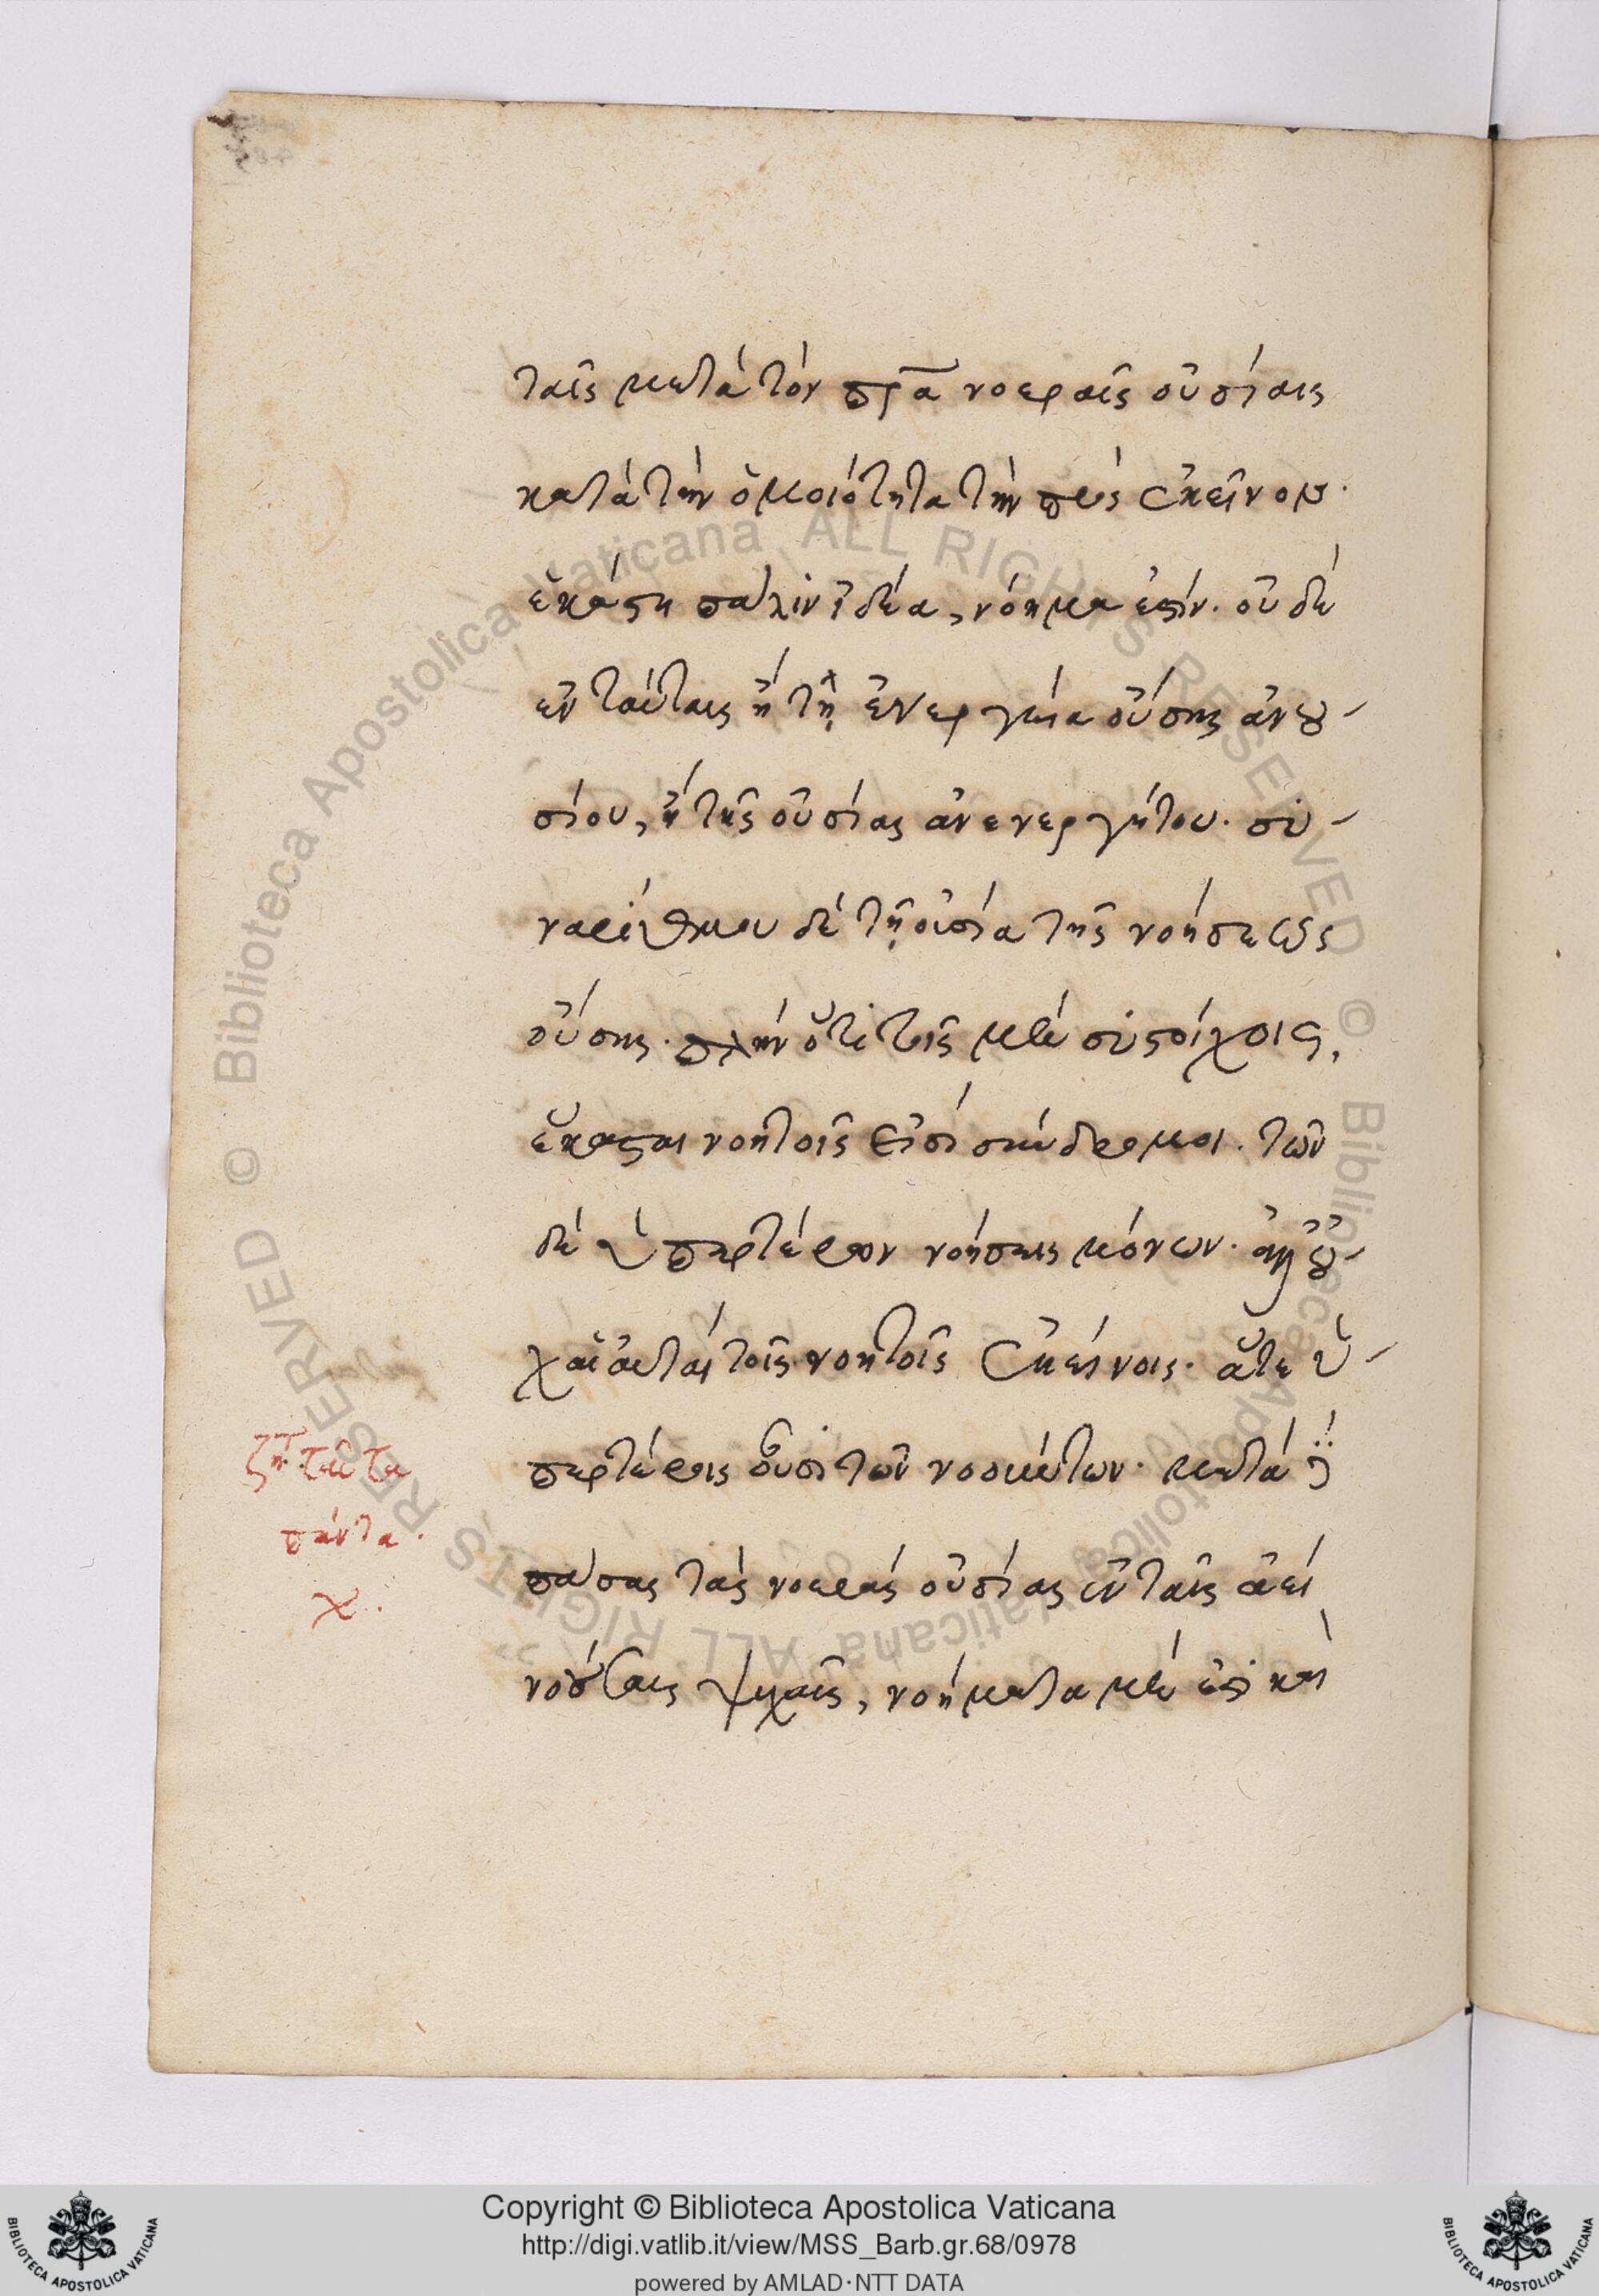 ταῖς μετὰ τὸν πρ̅α νοεραῖς οὐσίαις
κατὰ τὴν ὁμοιότητα τὴν πρὸς ἐκεῖνον·
ἑκάστη πάλιν ἰδέα, νόημα ἐστίν. οὐδὲ
ἐν ταύταις ἢ τῆς ἐνεργεία οὔσης ἀνου-
σίου, ἢ τῆς οὐσίας ἀνενεργήτου. συ-
ναρίθμου δὲ τῇ οὐσία τῆς νοήσεως
οὔσης. πλὴν ὅτι τοῖς μὲν συστοίχοις,
ἕκασται νοητοῖς εἰσὶ σύνδρομοι. τῶν
δὲ ὑπερτέρων νοήσεις μόνων. ἀλλ' οὐ-
χαὶ αὐταὶ τοῖς νοητοῖς ἐκείνοις. ἅτε ὑ-
περτέροις οὖσι τῶν νοουμένων. μετὰ δὲ
πάσας τὰς νοερὰς οὐσίας ἐν ταῖς ἀεὶ
νοούσαις ψυχαῖς, νοήματα μέν ἐστι καὶ
ζητ ταῦτα
πάντα.
Biblioteca Apostolica Vaticana ALL RIGHTS RESERVED © Biblioteca Apostolica Vaticana ALL RIGHTS RESERVED ©
Copyright © Biblioteca Apostolica Vaticana
http://digi.vatlib.it/view/MSS_Barb.gr.68/0978
powered by AMLAD·NTT DATA
BIBLIOTECA APOSTOLICA VATICANA
BIBLIOTECA APOSTOLICA VATICANA